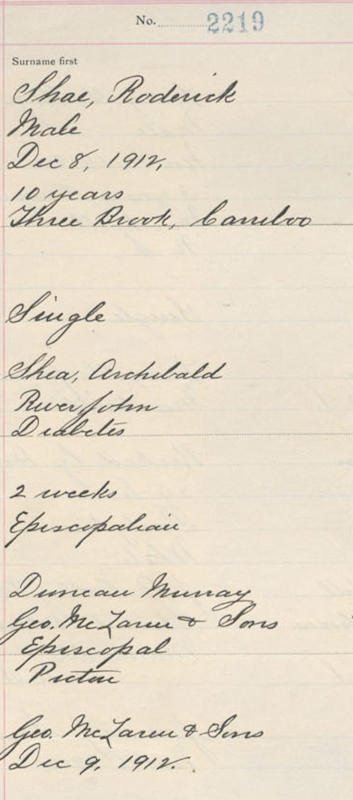 No. 2219
Surname first
Shae, Roderick
Male
Dec 8, 1912,
10 years
Three Brook, Carriboo
Single
Shea, Archibald
River John
Diabetes
2 weeks
Episcopalian
Duncan Murray
Geo. McLaren & Sons
Episcopal
Pictou
Geo. McLaren & Sons
Dec 9, 1912.